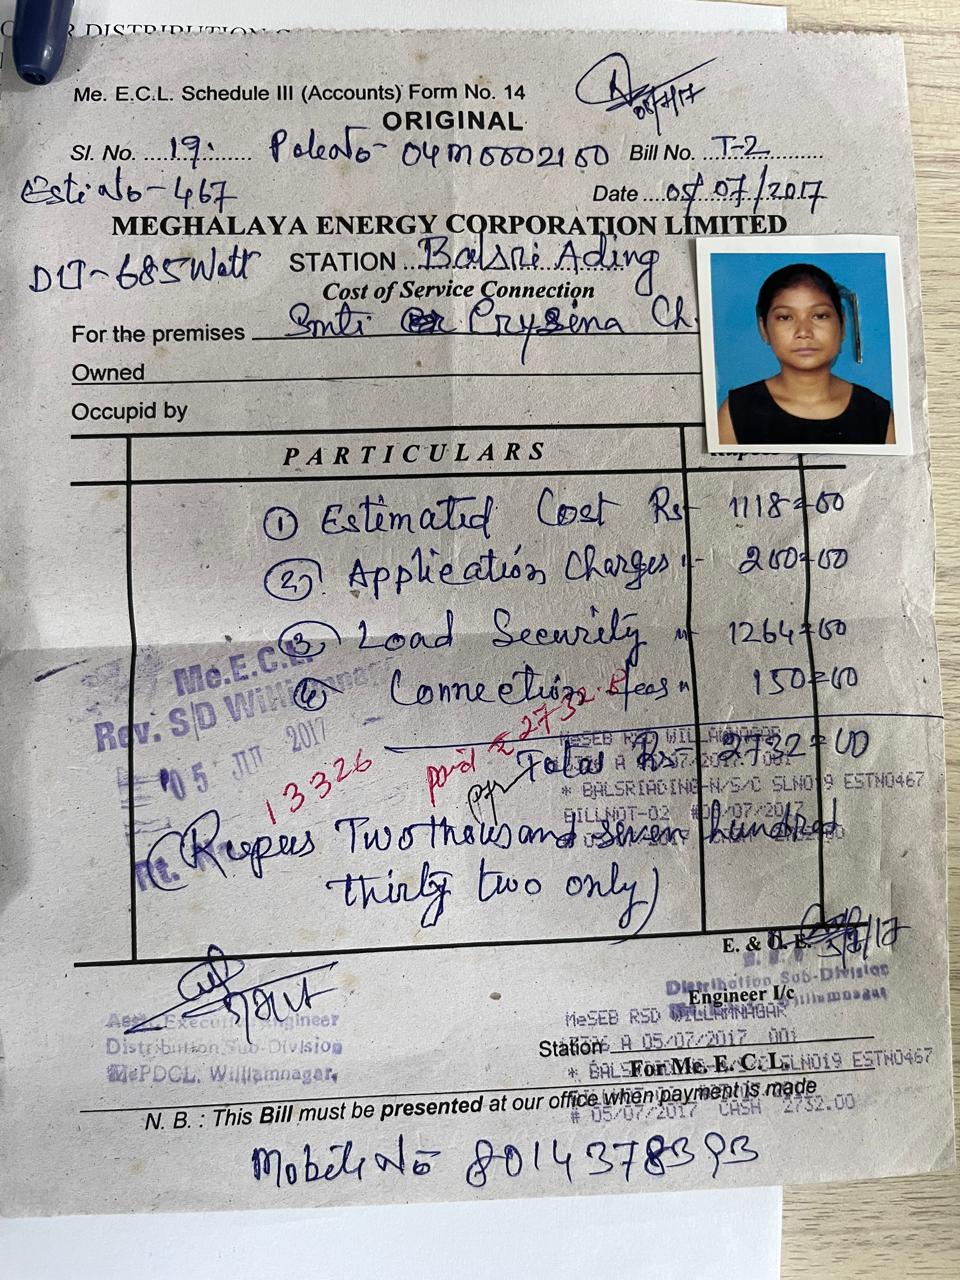 DISTRIBUTION
Me. E.C.L. Schedule III (Accounts) Form No. 14
05/7/17
ORIGINAL
Sl. No. 19. Pole No- 04M0002100 Bill No. T-2
Esti No - 467
Date 05/07/2017
MEGHALAYA ENERGY CORPORATION LIMITED
685 Watt STATION Balsri Ading
Cost of Service Connection
For the premises Smti Crysina Ch.
Owned
Occupid by
PARTICULARS
① Estimated Cost Rs- 1118=00
② Application Charges "- 200=00
③ Load Security "- 1264=00
④ Connection fees " 150=00
Me.E.C.L.
Rev. S/D Williamnagar
05 JUL 2017
13326
paid 2732
Total Rs- 2732=00
MeSEB RSD WILLAMNAGAR
A 05/07/2017 001
* BALSRIADING-N/S/C SLN019 ESTN0467
BILLNOT-02 #05/07/2017
(Rupees Two thousand seven hundred
thirty two only)
E. & O. E.
5/7/17
Distribution Sub-Division
Williamnagar
Engineer I/c
Executive Engineer
Distribution Sub-Division
MePDCL, Williamnagar,
MeSEB RSD WILLAMNAGAR
A 05/07/2017 001
Station
* BALS SLN019 ESTN0467
For Me. E. C. L.
# 05/07/2017 CASH 2732.00
N. B. : This Bill must be presented at our office when payment is made
Mobile No 8014378393